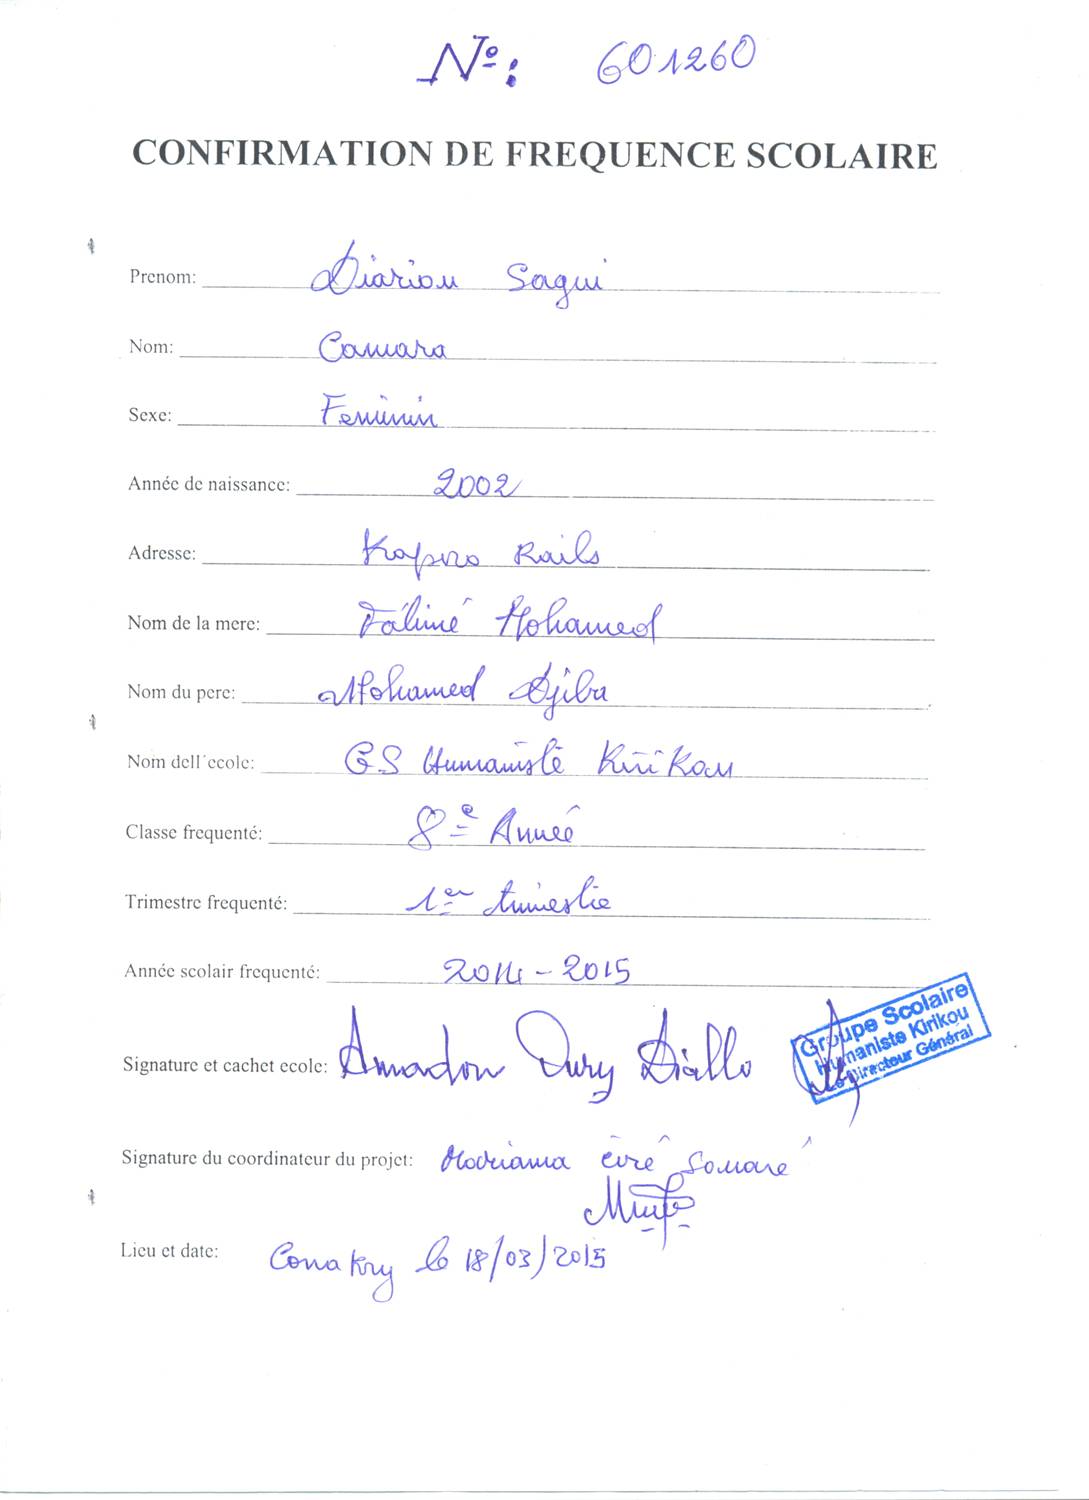 Nº: 601260
CONFIRMATION DE FREQUENCE SCOLAIRE
Prenom: Diariou Sagui
Nom: Camara
Sexe: Feminin
Année de naissance: 2002
Adresse: Kaporo Rails
Nom de la mere: Fatimé Mohamed
Nom du pere: Mohamed Djiba
Nom dell´ecole: GS Humaniste Kirikou
Classe frequenté: 8e Année
Trimestre frequenté: 1er trimestre
Année scolair frequenté: 2014-2015
Groupe Scolaire
Humaniste Kirikou
Le Directeur Général
Signature et cachet ecole: Amadou Oury Diallo
Signature du coordinateur du projet: Mariama Ciré Souaré
Lieu et date: Conakry le 18/03/2015